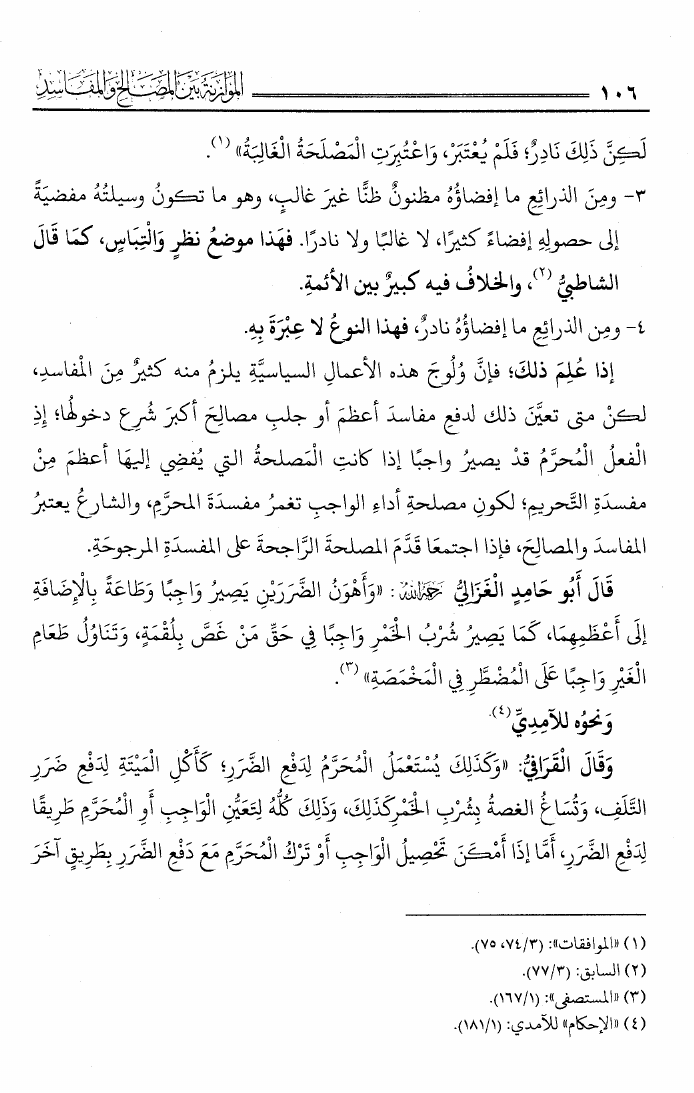 ١٠٦ الموازنة بين المصالح والمفاسد
لَكِنَّ ذَلِكَ نَادِرٌ؛ فَلَمْ يُعْتَبَرْ، وَاعْتُبِرَتِ الْمَصْلَحَةُ الْغَالِبَةُ» (١).
٣- ومِنَ الذرائعِ ما إفضاؤُهُ مظنونٌ ظنًّا غيرَ غالبٍ، وهو ما تكونُ وسيلتُهُ مفضيَةً
إلى حصولِهِ إفضاءً كثيرًا، لا غالبًا ولا نادرًا. فهَذا موضعُ نظرٍ والْتِبَاسٍ، كمَا قَالَ
الشاطبيُّ (٢)، والخلافُ فيه كبيرٌ بين الأئمةِ.
٤- ومِن الذرائعِ ما إفضاؤُهُ نادرٌ، فهذا النوعُ لا عِبْرَةَ بِهِ.
إذا عُلِمَ ذلكَ؛ فإنَّ وُلُوجَ هذه الأعمالِ السياسيَّةِ يلزمُ منه كثيرٌ مِنَ الْمفاسدِ،
لكنْ متى تعيَّنَ ذلك لدفعِ مفاسدَ أعظمَ أو جلبِ مصالحَ أكبرَ شُرِع دخولُها؛ إذِ
الْفعلُ الْمُحرَّمُ قدْ يصيرُ واجبًا إذا كانتِ الْمَصلحةُ التي يُفضِي إليهَا أعظمَ مِنْ
مفسدَةِ التَّحريمِ؛ لكونِ مصلحةِ أداءِ الواجبِ تغمرُ مفسدَةَ المحرَّمِ، والشارعُ يعتبرُ
المفاسدَ والمصالِحَ، فإذا اجتمعَا قدَّمَ المصلحةَ الرَّاجحةَ على المفسدَةِ المرجوحَةِ.
قَالَ أَبُو حَامِدٍ الْغَزَالِيُّ رَحِمَهُ اللهُ: «وَأَهْوَنُ الضَّرَرَيْنِ يَصِيرُ وَاجِبًا وَطَاعَةً بِالْإِضَافَةِ
إلَى أَعْظَمِهِمَا، كَمَا يَصِيرُ شُرْبُ الْخَمْرِ وَاجِبًا فِي حَقِّ مَنْ غَصَّ بِلُقْمَةٍ، وَتَنَاوُلُ طَعَامِ
الْغَيْرِ وَاجِبًا عَلَى الْمُضْطَّرِ فِي الْمَخْمَصَةِ» (٣).
وَنحوُه للآمديِّ (٤).
وَقَالَ الْقَرَافِيُّ: «وَكَذَلِكَ يُسْتَعْمَلُ الْمُحَرَّمُ لِدَفْعِ الضَّرَرِ؛ كَأَكْلِ الْمَيْتَةِ لِدَفْعِ ضَرَرِ
التَّلَفِ، وَتُسَاغُ الغصةُ بِشُرْبِ الْخَمْرِ كَذَلِكَ، وَذَلِكَ كُلُّهُ لِتَعَيُّنِ الْوَاجِبِ أَوِ الْمُحَرَّمِ طَرِيقًا
لِدَفْعِ الضَّرَرِ، أَمَّا إذَا أَمْكَنَ تَحْصِيلُ الْوَاجِبِ أَوْ تَرْكُ الْمُحَرَّمِ مَعَ دَفْعِ الضَّرَرِ بِطَرِيقٍ آخَرَ
(١) «الموافقات»: (٣/ ٧٤، ٧٥).
(٢) السابق: (٣/ ٧٧).
(٣) «المستصفى»: (١/ ١٦٧).
(٤) «الإحكام» للآمدي: (١/ ١٨١).